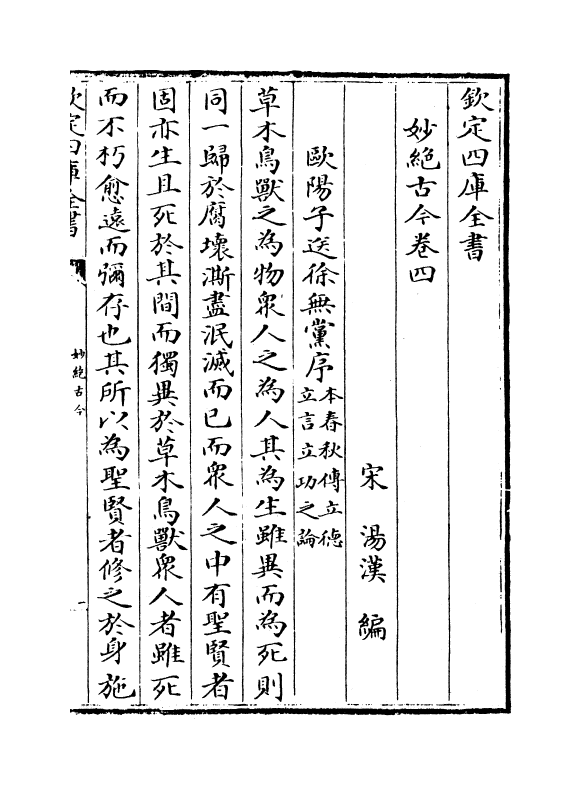 欽定四庫全書
妙絶古今卷四
宋 湯漢 編
歐陽子送徐無黨序本春秋傳立德
立言立功之論
草木鳥獸之為物衆人之為人其為生雖異而為死則
同一歸於腐壞澌盡泯滅而已而衆人之中有聖賢者
固亦生且死於其間而獨異於草木鳥獸衆人者雖死
而不朽愈遠而彌存也其所以為聖賢者修之於身施
欽定四庫全書
妙絶古今
一